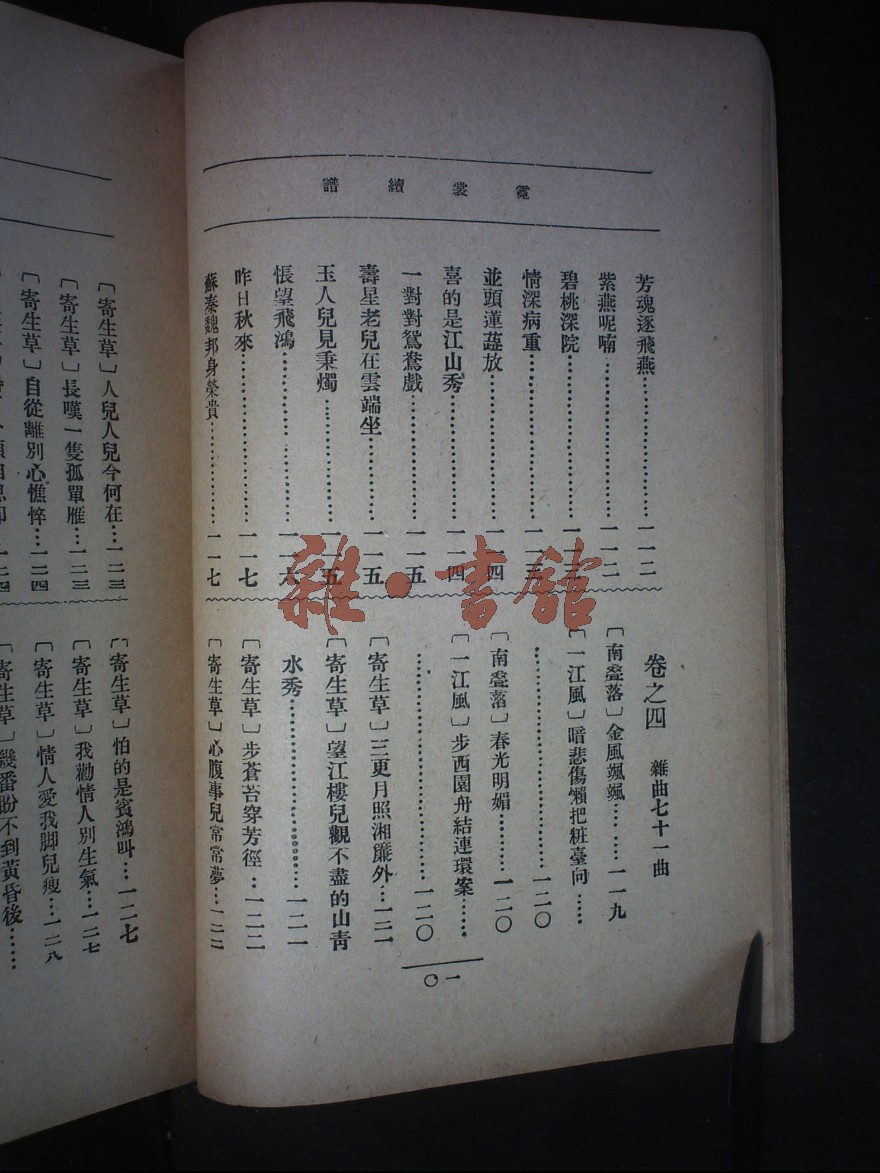 霓裳續譜
芳魂逐飛燕……………一一二
紫燕呢喃……………一一二
碧桃深院……………一一三
情深病重……………一一三
並頭蓮蕋放……………一一四
喜的是江山秀……………一一四
一對對鴛鴦戲……………一一五
壽星老兒在雲端坐………一一五
玉人兒見秉燭……………一一五
悵望飛鴻……………一一六
昨日秋來……………一一七
蘇秦魏邦身榮貴…………一一七
卷之四 雜曲七十一曲
〔南疊落〕金風颯颯………一一九
〔一江風〕暗悲傷懶把粧臺向……
……………一二〇
〔南疊落〕春光明媚………一二〇
〔一江風〕步西園舟結連環案……
……………一二〇
〔寄生草〕三更月照湘簾外…一二一
〔寄生草〕望江樓兒觀不盡的山靑
水秀……………一二一
〔寄生草〕步蒼苔穿芳徑…一二二
〔寄生草〕心腹事兒常常夢…一二二
一〇
〔寄生草〕人兒人兒今何在…一二三
〔寄生草〕長嘆一隻孤單雁…一二三
〔寄生草〕自從離別心憔悴…一二四
一二四
〔寄生草〕怕的是賓鴻叫…一二七
〔寄生草〕我勸情人別生氣…一二七
〔寄生草〕情人愛我脚兒瘦…一二八
〔寄生草〕幾番盼不到黃昏後……
雜·書館